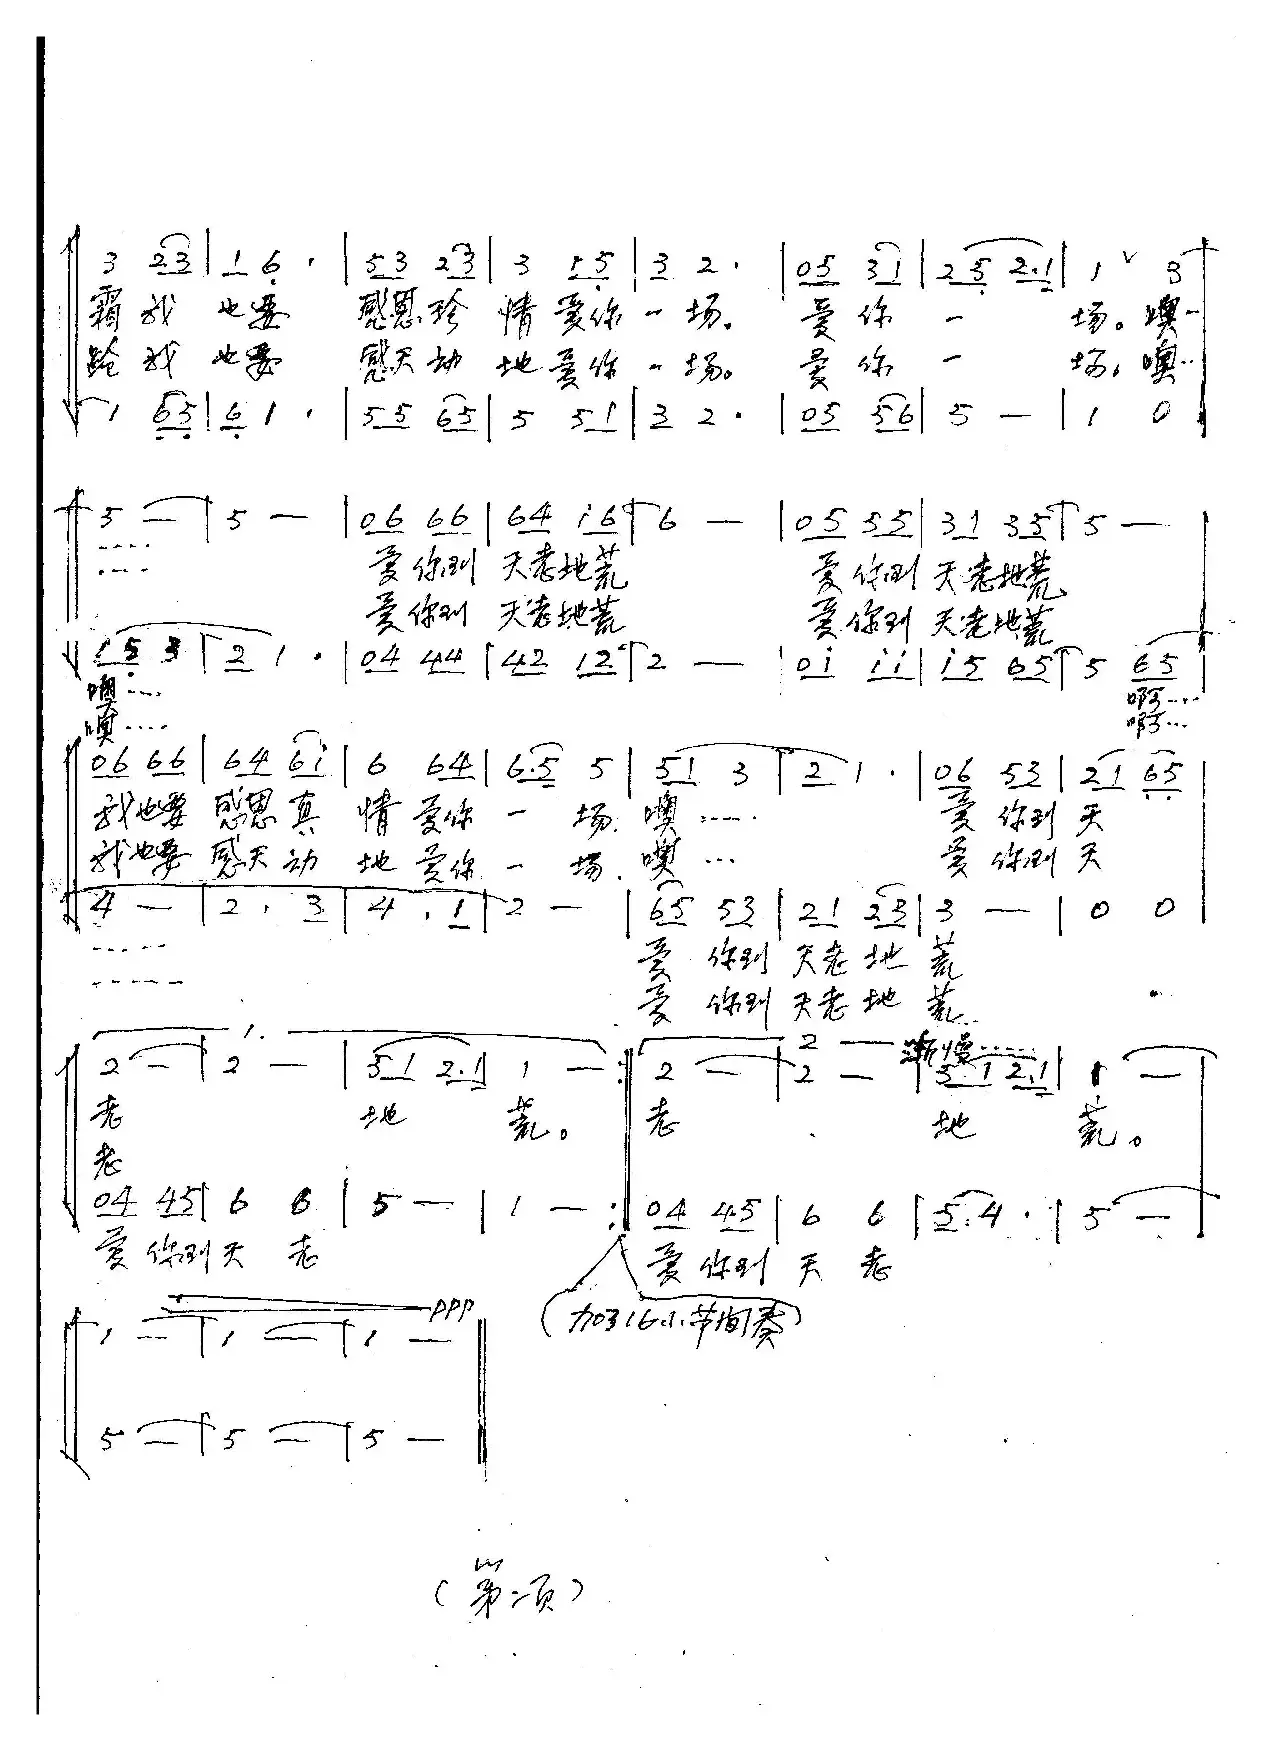 3 23 | 1 6 · | 53 23 | 3 15 | 3 2 · | 05 31 | 25 2·1 | 1 ∨ 3
霜我 也要 感恩珍 情爱你一场。 爱你一 场。噢…
我 也要 感天动 地爱你一场。 爱你一 场。噢…
1 65 | 6 1 · | 55 65 | 5 51 | 3 2 · | 05 56 | 5 — | 1 0
5 — | 5 — | 06 66 | 64 i6 | 6 — | 05 55 | 31 35 | 5 —
…… 爱你到 天老地荒 爱你到 天老地荒
…… 爱你到 天老地荒 爱你到 天老地荒
15 3 | 2 1 · | 04 44 | 42 12 | 2 — | 0i ii | i5 65 | 5 65
噢…… 啊……
噢…… 啊……
06 66 | 64 6i | 6 64 | 6·5 5 | 51 3 | 2 1 · | 06 53 | 21 65
我也要 感恩真 情 爱你一 场. 噢…… 爱你到 天
我也要 感天动 地 爱你一 场. 噢… 爱你到 天
4 — | 2 · 3 | 4 · 1 | 2 — | 65 53 | 21 23 | 3 — | 0 0
…… 爱 你到 天老地 荒
…… 爱 你到 天老地 荒
1. 2 — 渐慢……
2 — | 2 — | 51 2·1 | 1 — :‖ 2 — | 2 — | 51 2·1 | 1 —
老 地 荒。 老 地 荒。
老
04 45 | 6 6 | 5 — | 1 — :‖ 04 45 | 6 6 | 5·4 · | 5 —
爱 你到 天 老 爱 你到 天 老
(加316小节间奏)
ppp
1 — | 1 — | 1 — ‖
5 — | 5 — | 5 — ‖
(第二页)